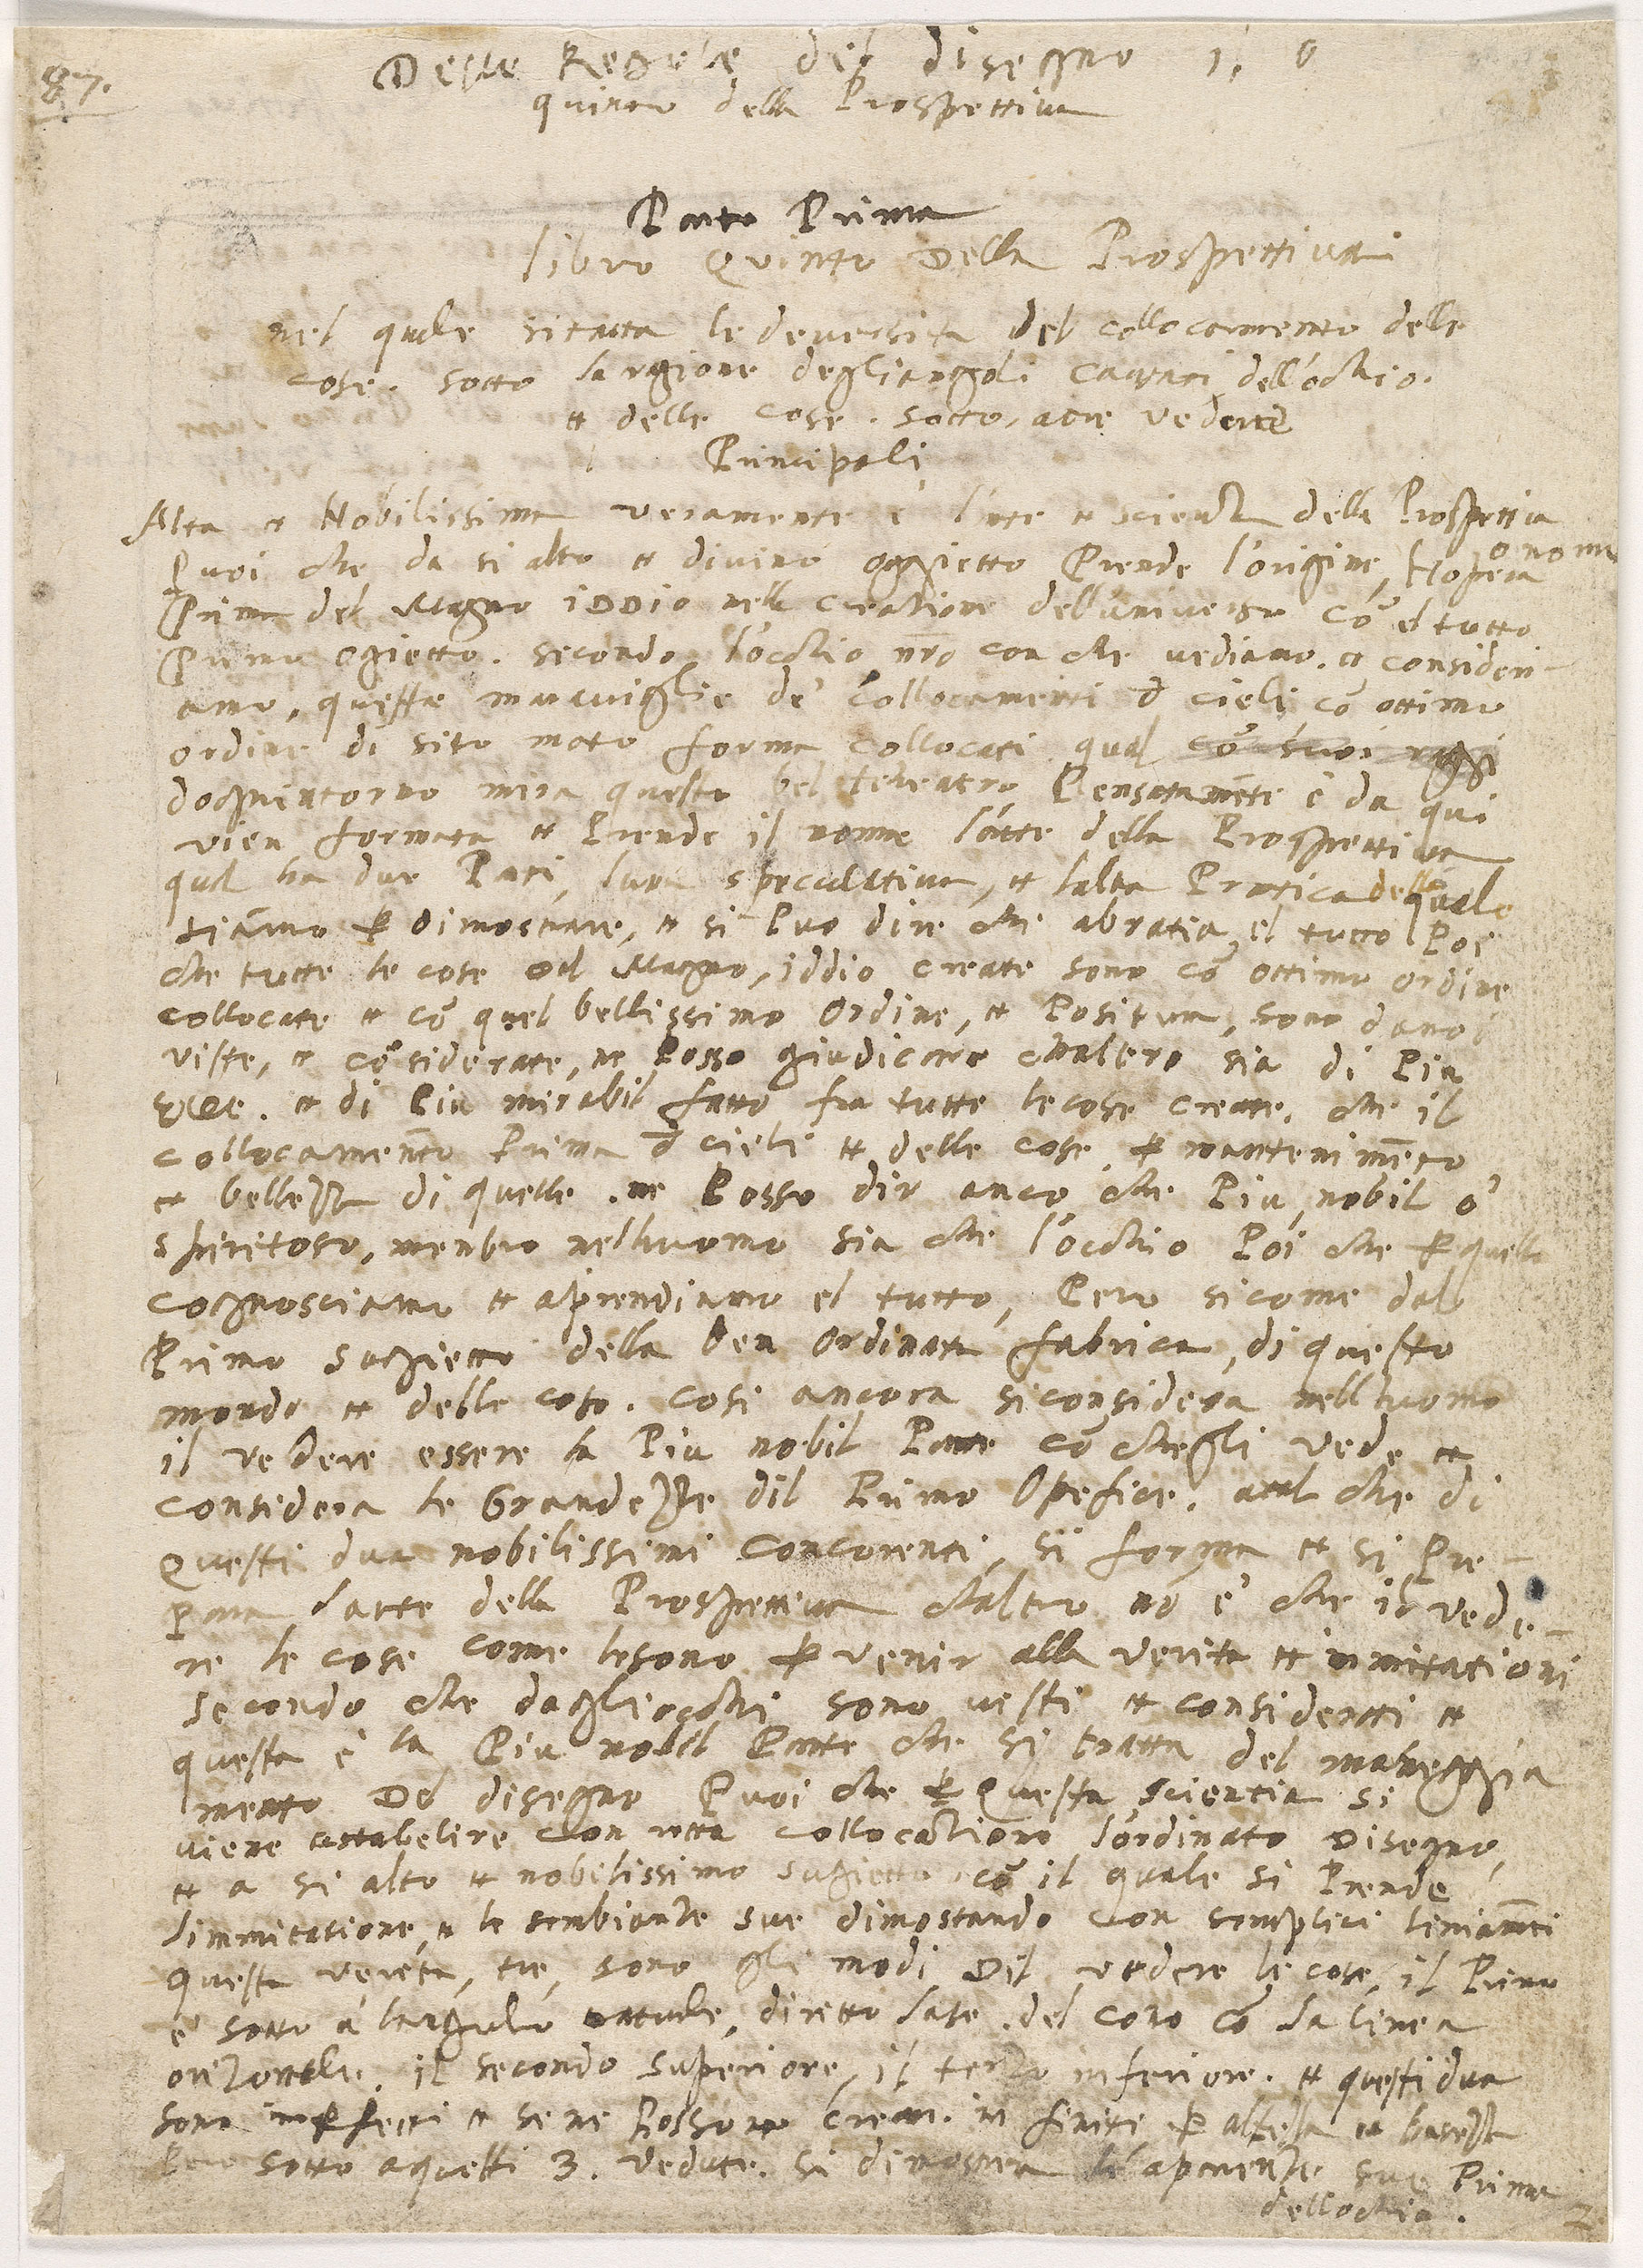 87.
Delle Regole del disegno l. 6
quinto della Prospettiva
Parte Prima
libro Quinto Della Prospettiva
nel quale si tratta le deversita del collocamento delle
cose. sotto la rgione degliangoli cavati dell'ochio.
et delle cose. sotto, a tre vedute
Principali
Alta et Nobilissima veramente è l'arte et scienza della Prospettiva
Puoi che da si alto et divino oggietto Prende l'origine,
Prima del Magno iDDio nella creatione dell'universo cō el tutto
Primo ogietto. secondo l'ochio nr̄o con che vediamo. et consideri-
amo, queste maraviglie de' Collocamenti d cieli cō ottimo
ordine di sito moto forma collocati qual cō suoi raggi
dognintorno mira questo bel teheatro Pensatamēte è da qui
vien formata et Prende il nome l'arte della Prospettiva
qual ha due Parti, luna speculativa, et laltra Pratica della quale
siamo p dimostrare, et si Puo dire che abratia el tutto Poi
che tutte le cose dal Magno, iddio create sono cō ottimo ordine
collocate et cō quel bellissimo Ordine, et Positura, sono da noi
viste, et cōsiderate, ne Posso giudicare ch'altero sia di Piu
et di Piu mirabil fatto fra tutte le cose create. che il
collocamento Prima d cieli et delle cose p mantenimēto
et bellezza di quelle. ne Posso dir anco che Piu nobil o'
spiritoso, menbro nelhuomo sia che l'ochio Poi che p quello
cognosciamo et aprendiamo el tutto, Pero sicome dal
Primo sugietto della ben Ordinata fabrica, di questo
mondo et delle cose. cosi ancora si considera nell huomo
il vedere essere la Piu nobil Parte cō chegli vede et
considera le Grandezze dil Primo Opefice. tal che di
Questi dua nobilissimi concorenti, si forma et si Pre-
para larte della Prospettiva ch'altro nō è che il vede-
re le cose come le sono p venir alla verita et immitationi
secondo che dagliochi sono visti et considerati et
questa è la Piu nobil Parte che si tratta del maneggia
mento Del disegno Puoi che p Questa scientia si
viene astabelire con retta collocatione l'ordinato Disegno,
et a si alto et nobilissimo sugietto cō il quale si Prende
limmitatione, et le sembianze sue dimostando con semplici liniamēti
questa verita, tre, sono gli modi Dil vedere le cose, il Primo
è sotto a' langulo natuale, diretto lato. del cono cō la linea
orizontale. il secondo superiore, il terzo inferiore. et questi dua
sono imperfetti et se ne Possono crear. in finiti p altezza et basezza
Pero sotto aquesti 3. vedute. si dimostera le aparenze sue Prima
dellochio.
2